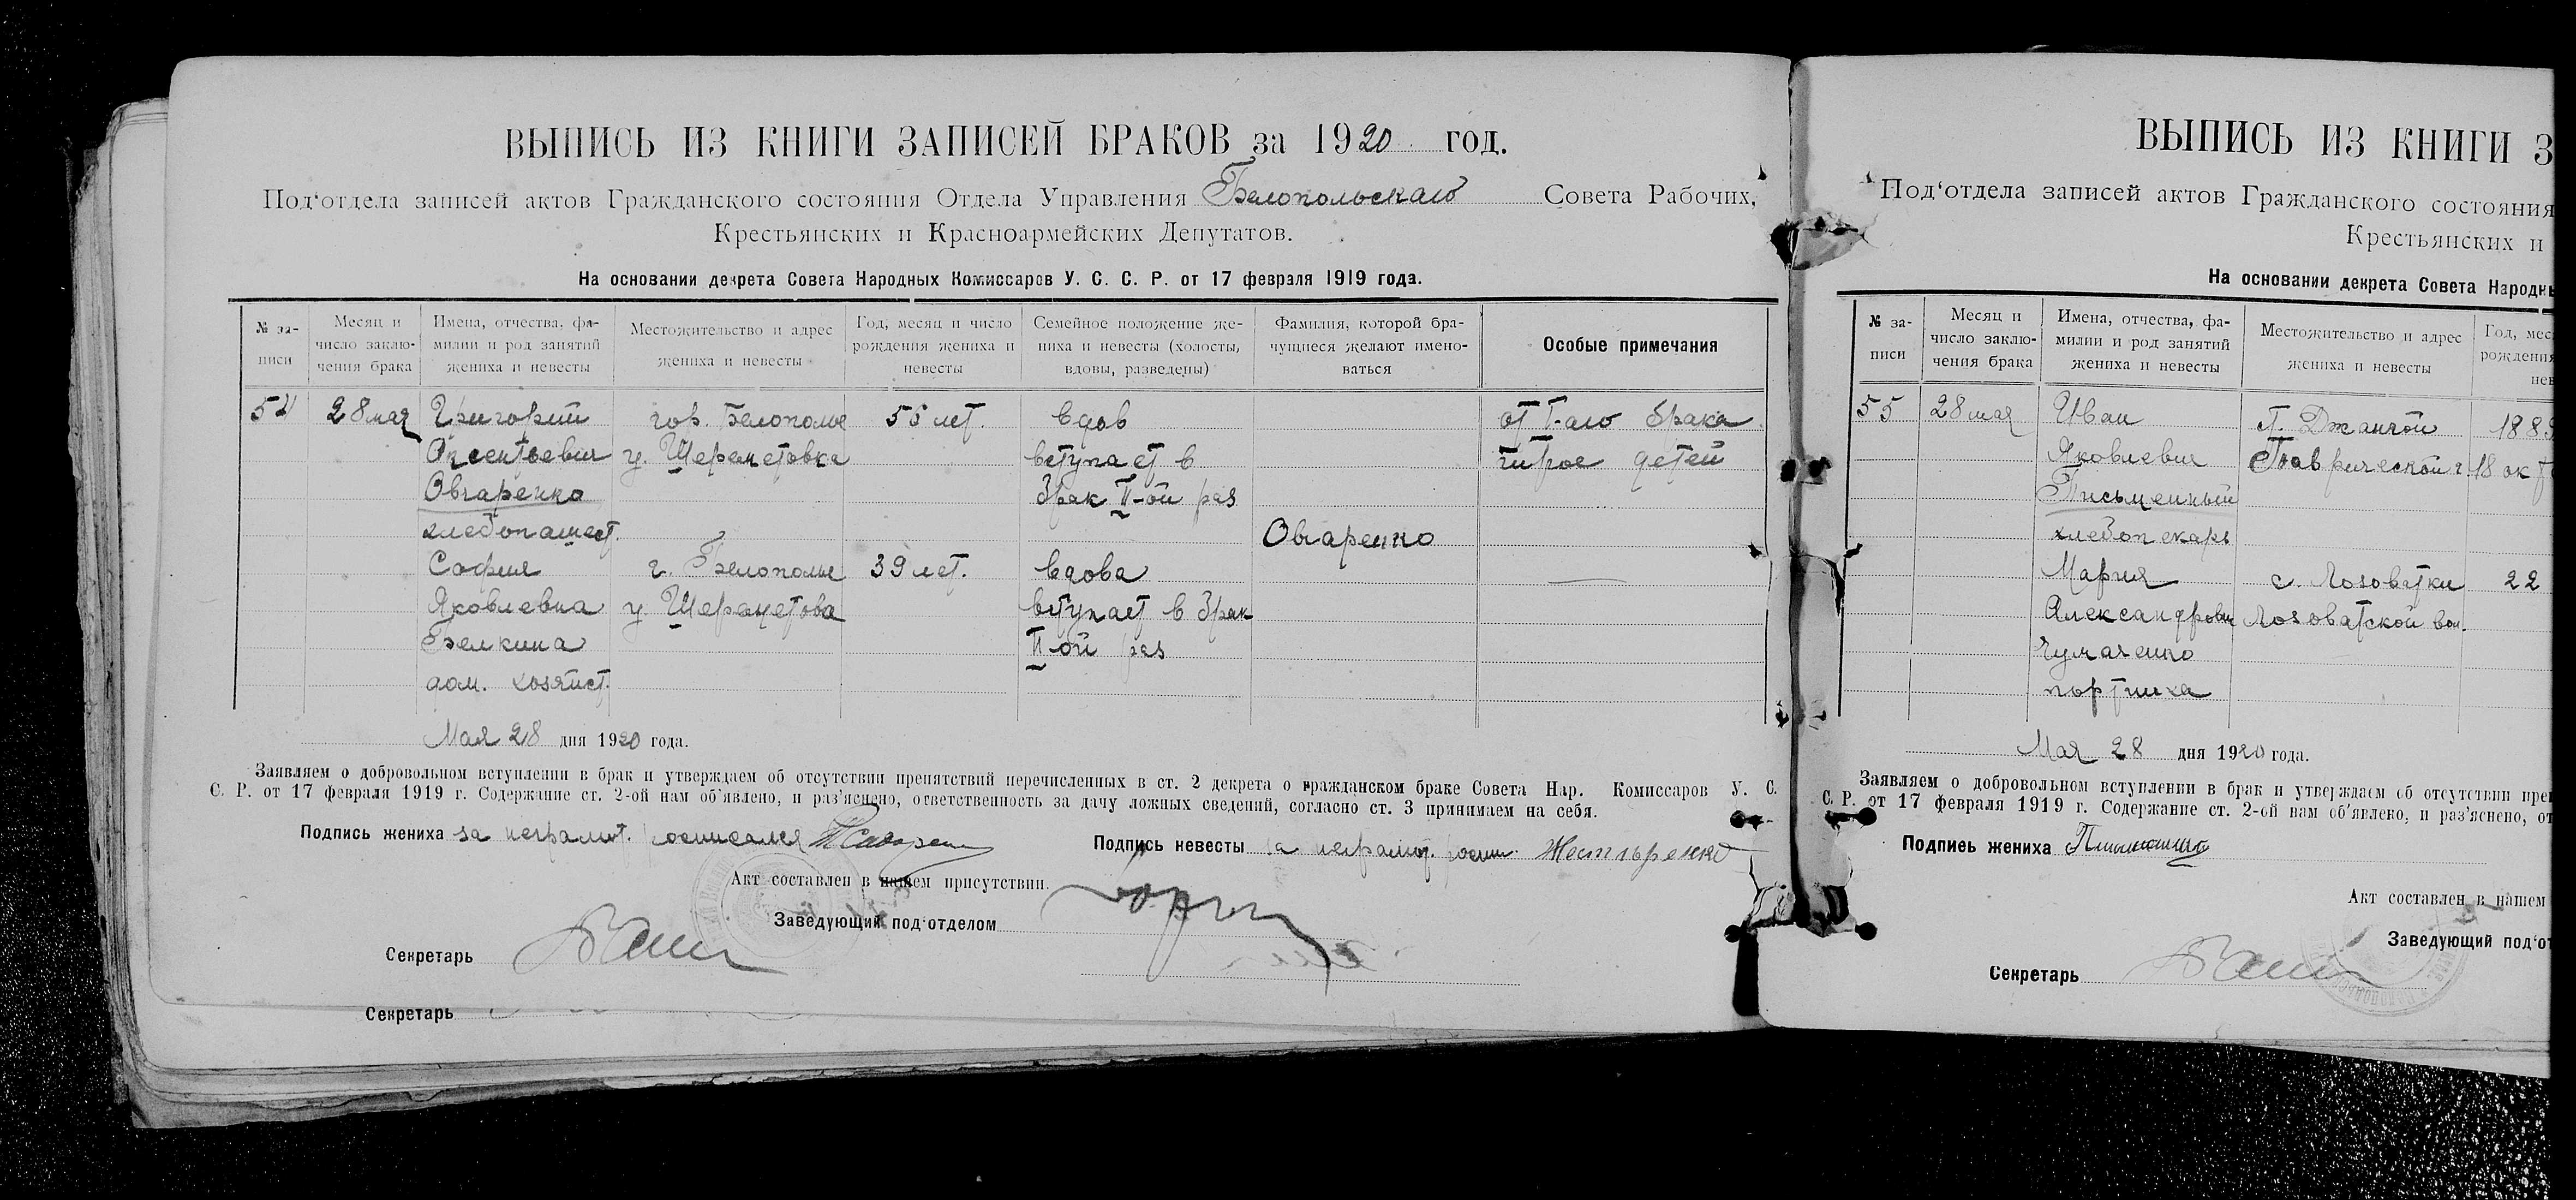 ВЫПИСЬ ИЗ КНИГИ ЗАПИСЕЙ БРАКОВ за 1920 год.
Под'отдела записей актов Гражданского состояния Отдела Управления Белопольскаго Совета Рабочих,
Крестьянских и Красноармейских Депутатов.
На основании декрета Совета Народных Комиссаров У. С. С. Р. от 17 февраля 1919 года.
№ за-
писи
Месяц и
число заклю-
чения брака
Имена, отчества, фа-
милии и род занятий
жениха и невесты
Местожительство и адрес
жениха и невесты
Год, месяц и число
рождения жениха и
невесты
Семейное положение же-
ниха и невесты (холосты,
вдовы, разведены)
Фамилия, которой бра-
чущиеся желают имено-
ваться
Особые примечания
54 28 мая Григорий гор. Белополье 55 лет. вдов от I-аго брака
у. Шереметовка вступает в трое детей
Овчаренко брак II-ой раз
хлебопашест.
Овчаренко
София г. Белополье 39 лет. вдова
Яковлевна у Шереметова вступает в брак
Белкина II-ой раз
дом. хозяйст.
Мая 28 дня 1920 года.
Заявляем о добровольном вступлении в брак и утверждаем об отсутствии препятствий перечисленных в ст. 2 декрета о гражданском браке Совета Нар. Комиссаров У. С.
С. Р. от 17 февраля 1919 г. Содержание ст. 2-ой нам об'явлено, и раз'яснено, ответственность за дачу ложных сведений, согласно ст. 3 принимаем на себя.
Подпись жениха за неграмот. росписался
Подпись невесты за неграмот. роспис.
Акт составлен в нашем присутствии.
Заведующий под'отделом
Секретарь
Секретарь
ВЫПИСЬ ИЗ КНИГИ З
Под'отдела записей актов Гражданского состояния
Крестьянских и
На основании декрета Совета Народн
№ за-
писи
Месяц и
число заклю-
чения брака
Имена, отчества, фа-
милии и род занятий
жениха и невесты
Местожительство и адрес
жениха и невесты
Год, мес
рождения
нев
55 28 мая Иван п. Джанкой 188
Яковлевич Таврической г. 18 окт
Письменный
хлебопекарь
Мария с. Лозоватки 22
Александровн Лозоватской вол.
Чумаченко
портниха
Мая 28 дня 1920 года.
Заявляем о добровольном вступлении в брак и утверждаем об отсутствии пре
С. Р. от 17 февраля 1919 г. Содержание ст. 2-ой нам об'явлено, и раз'яснено, от
Подпись жениха
Акт составлен в нашем
Заведующий под'от
Секретарь